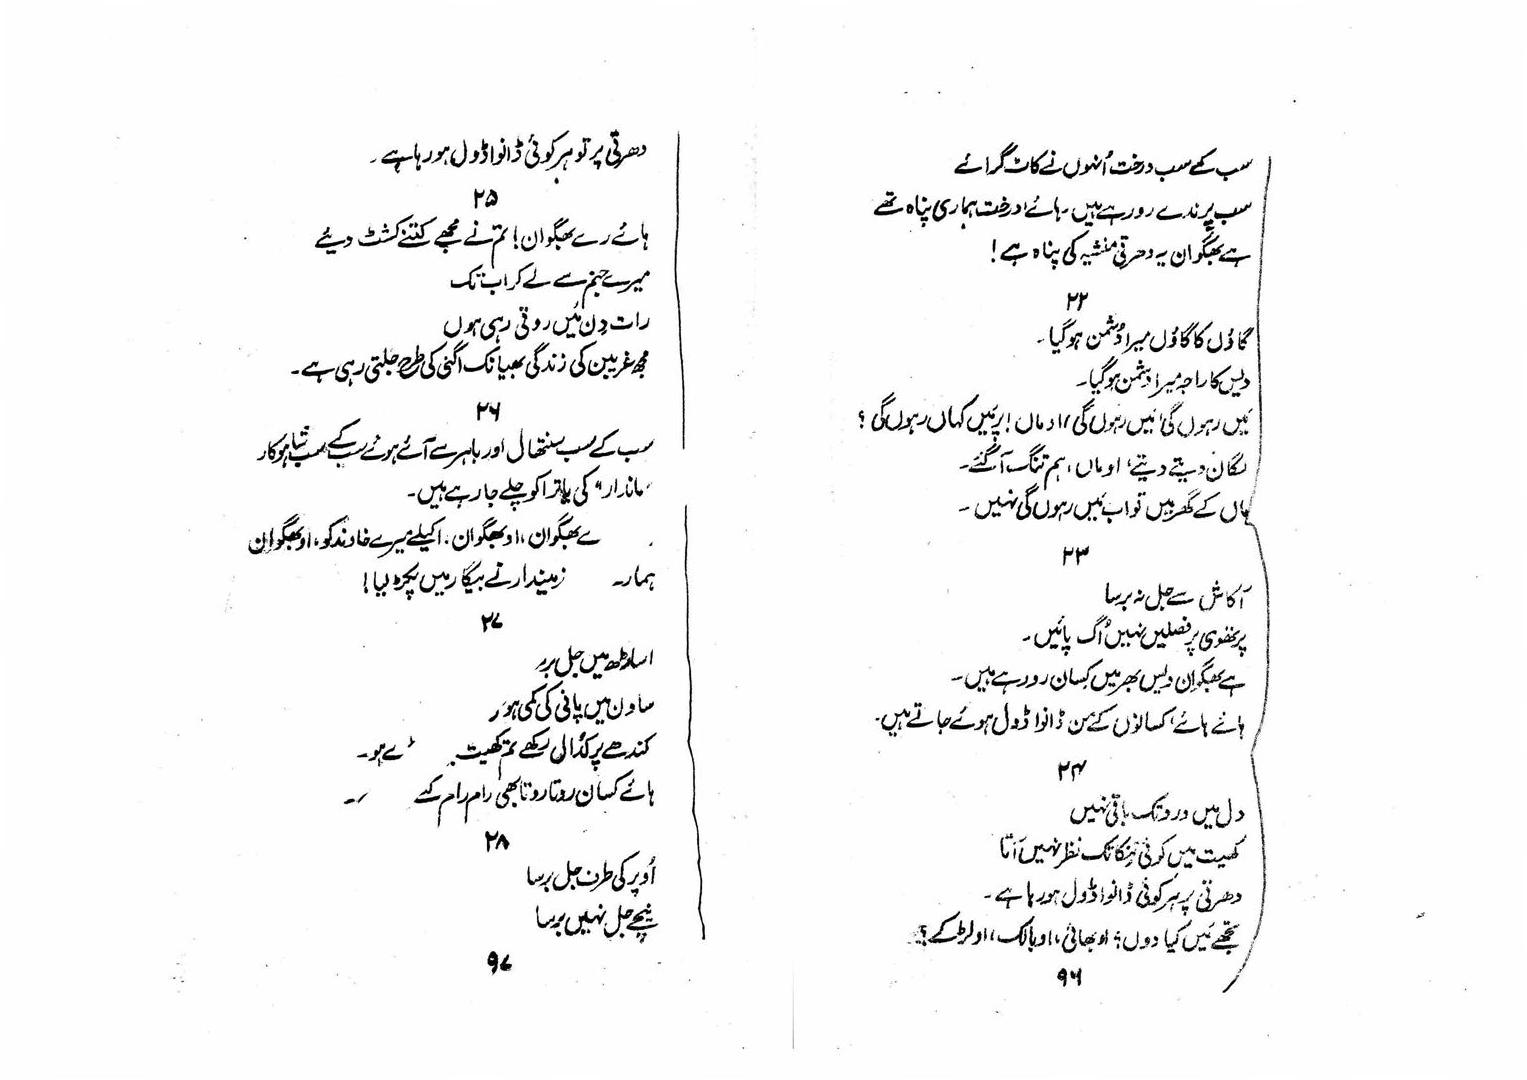 سب کے سب درخت اُنہوں نے کاٹ گرائے
سب پرندے رو رہے ہیں۔ ہائے! درخت ہماری پناہ تھے
ہے بھگوان یہ دھرتی منشیہ کی پناہ ہے!
۲۲
گاؤں کا گاؤں میرا دُشمن ہو گیا۔
دیس کا راجہ میرا دشمن ہو گیا۔
مَیں رہوں گی، مَیں رہوں گی، او ماں! پر مَیں کہاں رہوں گی؟
لگان دیتے دیتے، او ماں، ہم تنگ آ گئے۔
ماں کے گھر میں تو اب مَیں رہوں گی نہیں۔
۲۳
آکاش سے جل نہ برسا
پرتھوی پر فصلیں نہیں اُگ پائیں۔
ہے بھگوان دیس بھر میں کسان رو رہے ہیں۔
ہائے ہائے، کسانوں کے من ڈانواڈول ہوئے جاتے ہیں۔
۲۴
دل میں درد تک باقی نہیں
کھیت میں کوئی تنکا تک نظر نہیں آتا
دھرتی پر ہر کوئی ڈانواڈول ہو رہا ہے۔
تجھے مَیں کیا دوں؟ او بھائی، او بالک، او لڑکے؟
۹۶
دھرتی پر تو ہر کوئی ڈانواڈول ہو رہا ہے۔
۲۵
ہائے رے بھگوان! تم نے مجھے کتنے کشٹ دیئے
میرے جنم سے لے کر اب تک
رات دِن مَیں روتی رہی ہوں
مجھ غریبن کی زندگی بھیانک اگنی کی طرح جلتی رہی ہے۔
۲۶
سب کے سب سنتھال اور باہر سے آئے ہوئے سب کے سب ساہوکار
"ماندار" کی یاترا کو چلے جا رہے ہیں۔
ے بھگوان، او بھگوان، اکیلے میرے خاوند کو، او بھگوان
ہمار۔ زمیندار نے بیگار میں پکڑ لیا!
۲۷
اساڑھ میں جل بر
ساون میں پانی کی کمی ہو
کندھے پر کُدال رکھے تم کھیت ے ہو۔
ہائے کسان روتا روتا بھی رام رام کہے
۲۸
اُوپر کی طرف جل برسا
نیچے جل نہیں برسا
۹۷